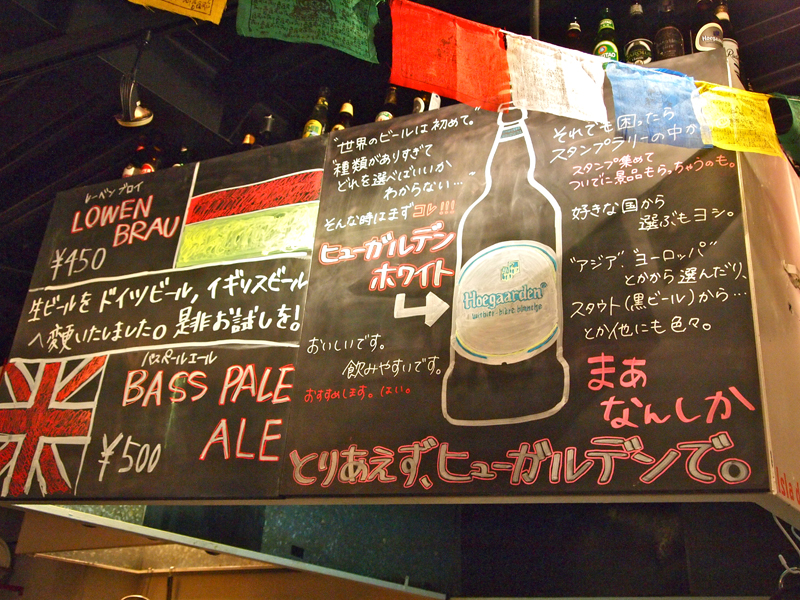 レーベンブロイ
LOWEN
BRAU
¥450
生ビールを ドイツビール, イギリスビール
へ変更いたしました。是非お試しを!
バスペールエール
BASS PALE
ALE
¥500
"世界のビールは初めて。"
"種類がありすぎて
どれを選べばいいか
わからない…"
そんな時はまずコレ!!!
ヒューガルデン
ホワイト
おいしいです。
飲みやすいです。
おすすめします。はい。
Hoegaarden
それでも困ったら
スタンプラリーの中から
スタンプ集めて
ついでに景品もらっちゃうのも。
好きな国から
選ぶもヨシ。
"アジア". "ヨーロッパ"
とかから選んだり、
スタウト(黒ビール)から…
とか他にも色々。
まあ
なんしか
とりあえず、ヒューガルデンで。
Isla d